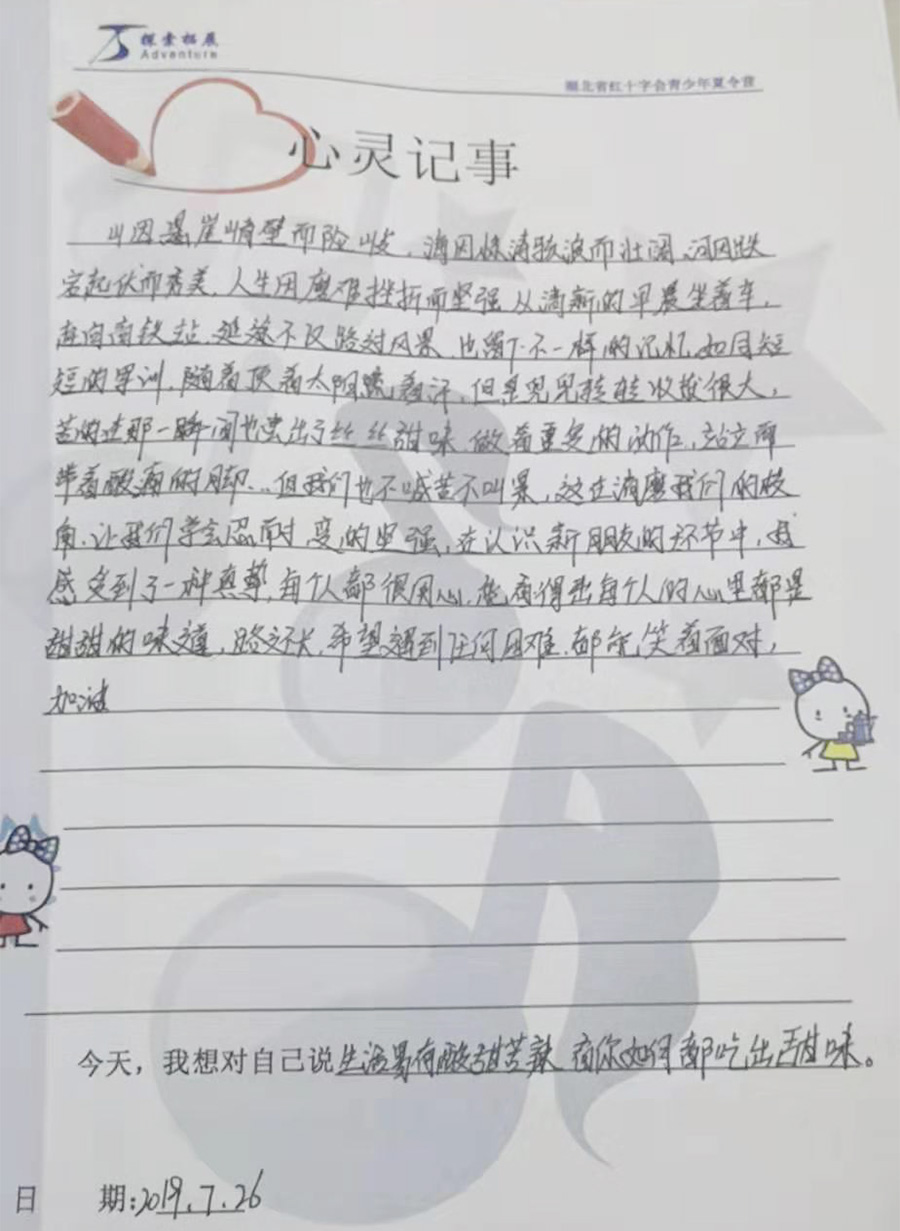 探索拓展
Adventure
湖北省红十字会青少年夏令营
心灵记事
山因悬崖峭壁而险峻，海因惊涛骇浪而壮阔，河因跌
宕起伏而秀美，人生因磨难挫折而坚强 从清新的早晨坐着车，
奔向南铁站，延途不仅路过风景，也留下不一样的记忆，如同短
短的军训，随着顶着太阳流着汗，但是兜兜转转收获很大，
苦的过那一瞬间也尝出了丝丝甜味，做着重复的动作，站立而
带着酸痛的脚...但我们也不喊苦不叫累，这在消磨我们的棱
角，让我们学会忍耐，变的坚强，在认识新朋友的环节中，我
感受到了一种真挚，每个人都很用心，能看得出每个人的心里都是
甜甜的味道，路还长，希望遇到任何困难，都能笑着面对，
加油
今天，我想对自己说生活累有酸甜苦辣 看你如何都吃出甜味。
日 期：2019.7.26